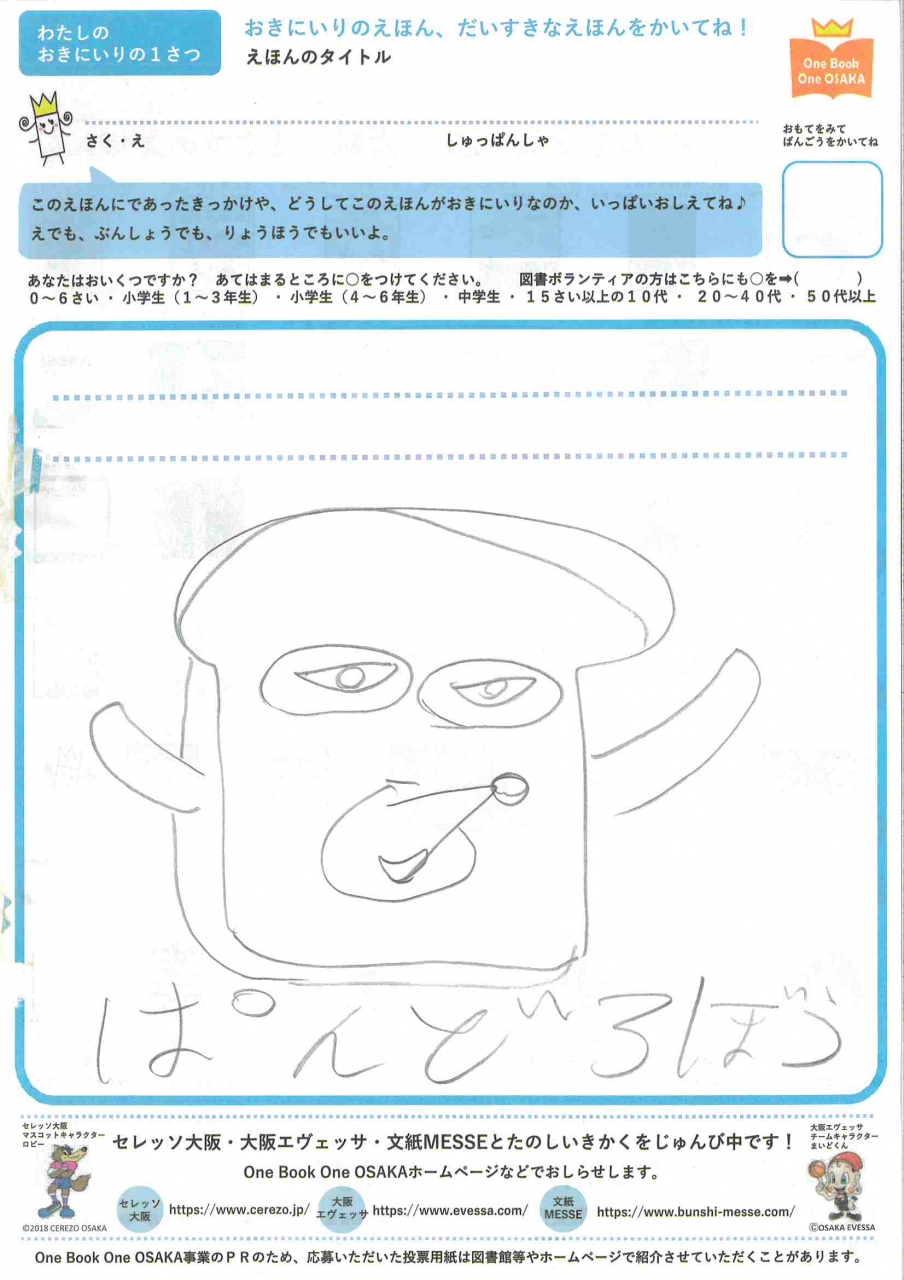 わたしの
おきにいりの１さつ
おきにいりのえほん、だいすきなえほんをかいてね！
えほんのタイトル
One Book
One OSAKA
さく・え
しゅっぱんしゃ
おもてをみて
ばんごうをかいてね
このえほんにであったきっかけや、どうしてこのえほんがおきにいりなのか、いっぱいおしえてね♪
えでも、ぶんしょうでも、りょうほうでもいいよ。
あなたはおいくつですか？　あてはまるところに〇をつけてください。　　図書ボランティアの方はこちらにも〇を➡(　　　　)
０～６さい ・ 小学生（１～３年生） ・ 小学生（４～６年生） ・ 中学生 ・ １５さい以上の１０代 ・ ２０～４０代 ・ ５０代以上
ぱんどろぼう
セレッソ大阪
マスコットキャラクター
ロビー
セレッソ大阪・大阪エヴェッサ・文紙MESSEとたのしいきかくをじゅんび中です！
One Book One OSAKAホームページなどでおしらせします。
大阪エヴェッサ
チームキャラクター
まいどくん
セレッソ
大阪
https://www.cerezo.jp/
大阪
エヴェッサ
https://www.evessa.com/
文紙
MESSE
https://www.bunshi-messe.com/
©2018 CEREZO OSAKA
©OSAKA EVESSA
One Book One OSAKA事業のＰＲのため、応募いただいた投票用紙は図書館等やホームページで紹介させていただくことがあります。